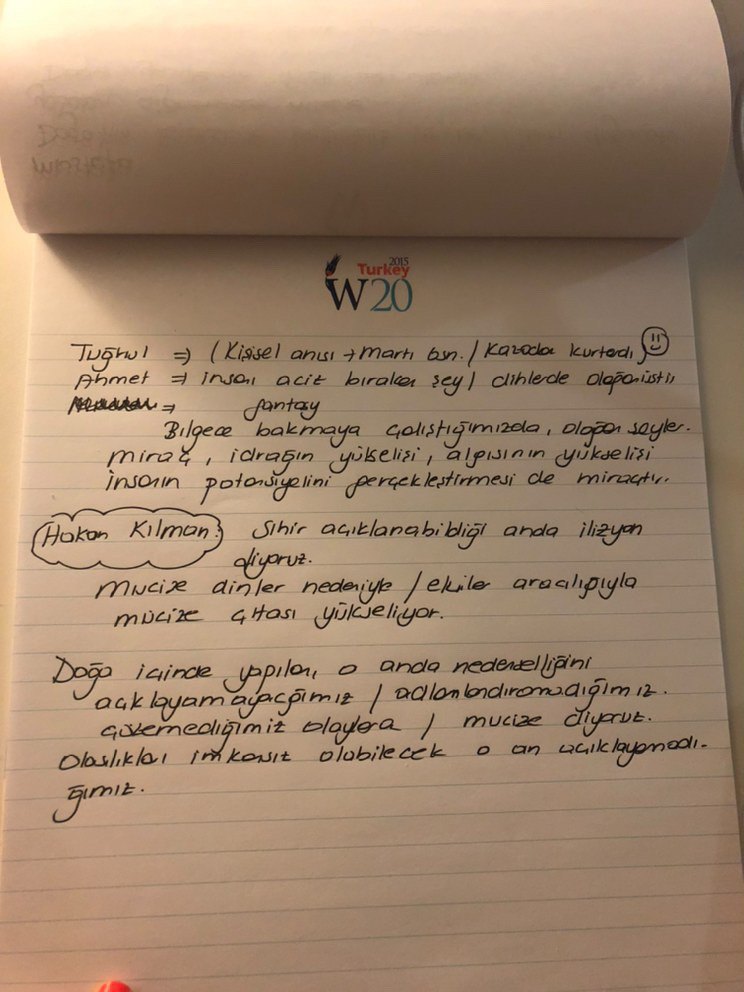 2015
Turkey
W20
Tuğrul ⇒ (Kişisel anısı → Martı bsn. / Kazadan kurtardı)
Ahmet ⇒ insanı aciz bırakan şey / dinlerde olağanüstü
⇒ fantasy
Bilgece bakmaya çalıştığımızda, olağan şeyler.
miraç, idrağın yükselişi, algısının yükselişi
insanın potansiyelini gerçekleştirmesi de miraçtır.
Hakan Kılman: Sihir açıklanabildiği anda ilizyon
diyoruz.
mucize dinler nedeniyle / ekiler aracılığıyla
mucize çıtası yükseliyor.
Doğa içinde yapılan, o anda nedenselliğini
açıklayamayacağımız / adlandıramadığımız.
çözemediğimiz olaylara / mucize diyoruz.
Olasılıkları imkansız olabilecek o an açıklayamadı-
ğımız.